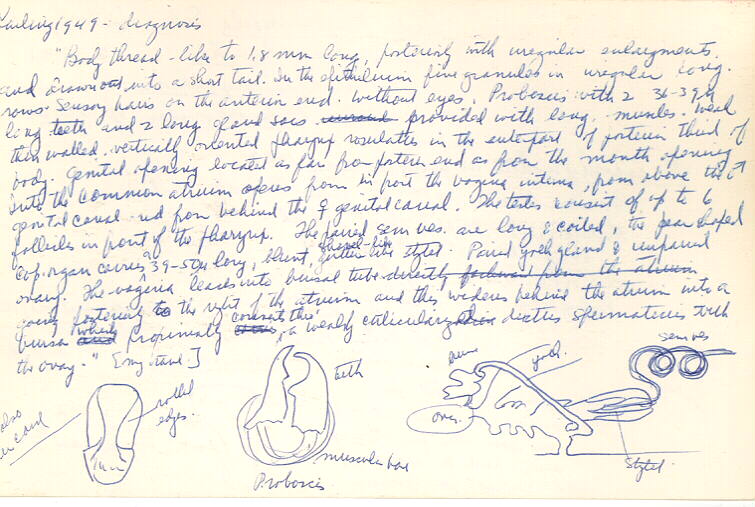 1949 - diagnosis
"Body thread-like to 1.8 mm long, posteriorly with irregular enlargments
and drawn out into a short tail. In the epithelium fine granules in irregular long.
rows. Sensory hairs on the anterior end. Without eyes. Proboscis with 2 36-39µ
long teeth and 2 long gland sacs provided with long. muscles. Weak
thin walled, vertically oriented pharynx rosulatus in the anterpart of posterior third of
body. Genital opening located as far fr. posterior end as from the mouth opening
Into the common atrium opens from in front the vagina interna, from above the ♂
genital canal and from behind the ♀ genital canal. The testes consist of up to 6
follicles in front of the pharynx. The paired sem ves. are long & coiled, the pear shaped
cop. organ carries a 39-50µ long, blunt, shovel-like gutter like stylet. Paired yolk gland & unpaired
ovary. The vagina leads into bursal tube directly forward from the atrium
going posteriorly to the right of the atrium and this widens behind the atrium into a
bursa which proximally connects thru a weakly cuticularized ductus spermaticus with
the ovary." [my transl.]
also
rolled
edges
teeth
muscular
Proboscis
ov.
sem ves
stylet